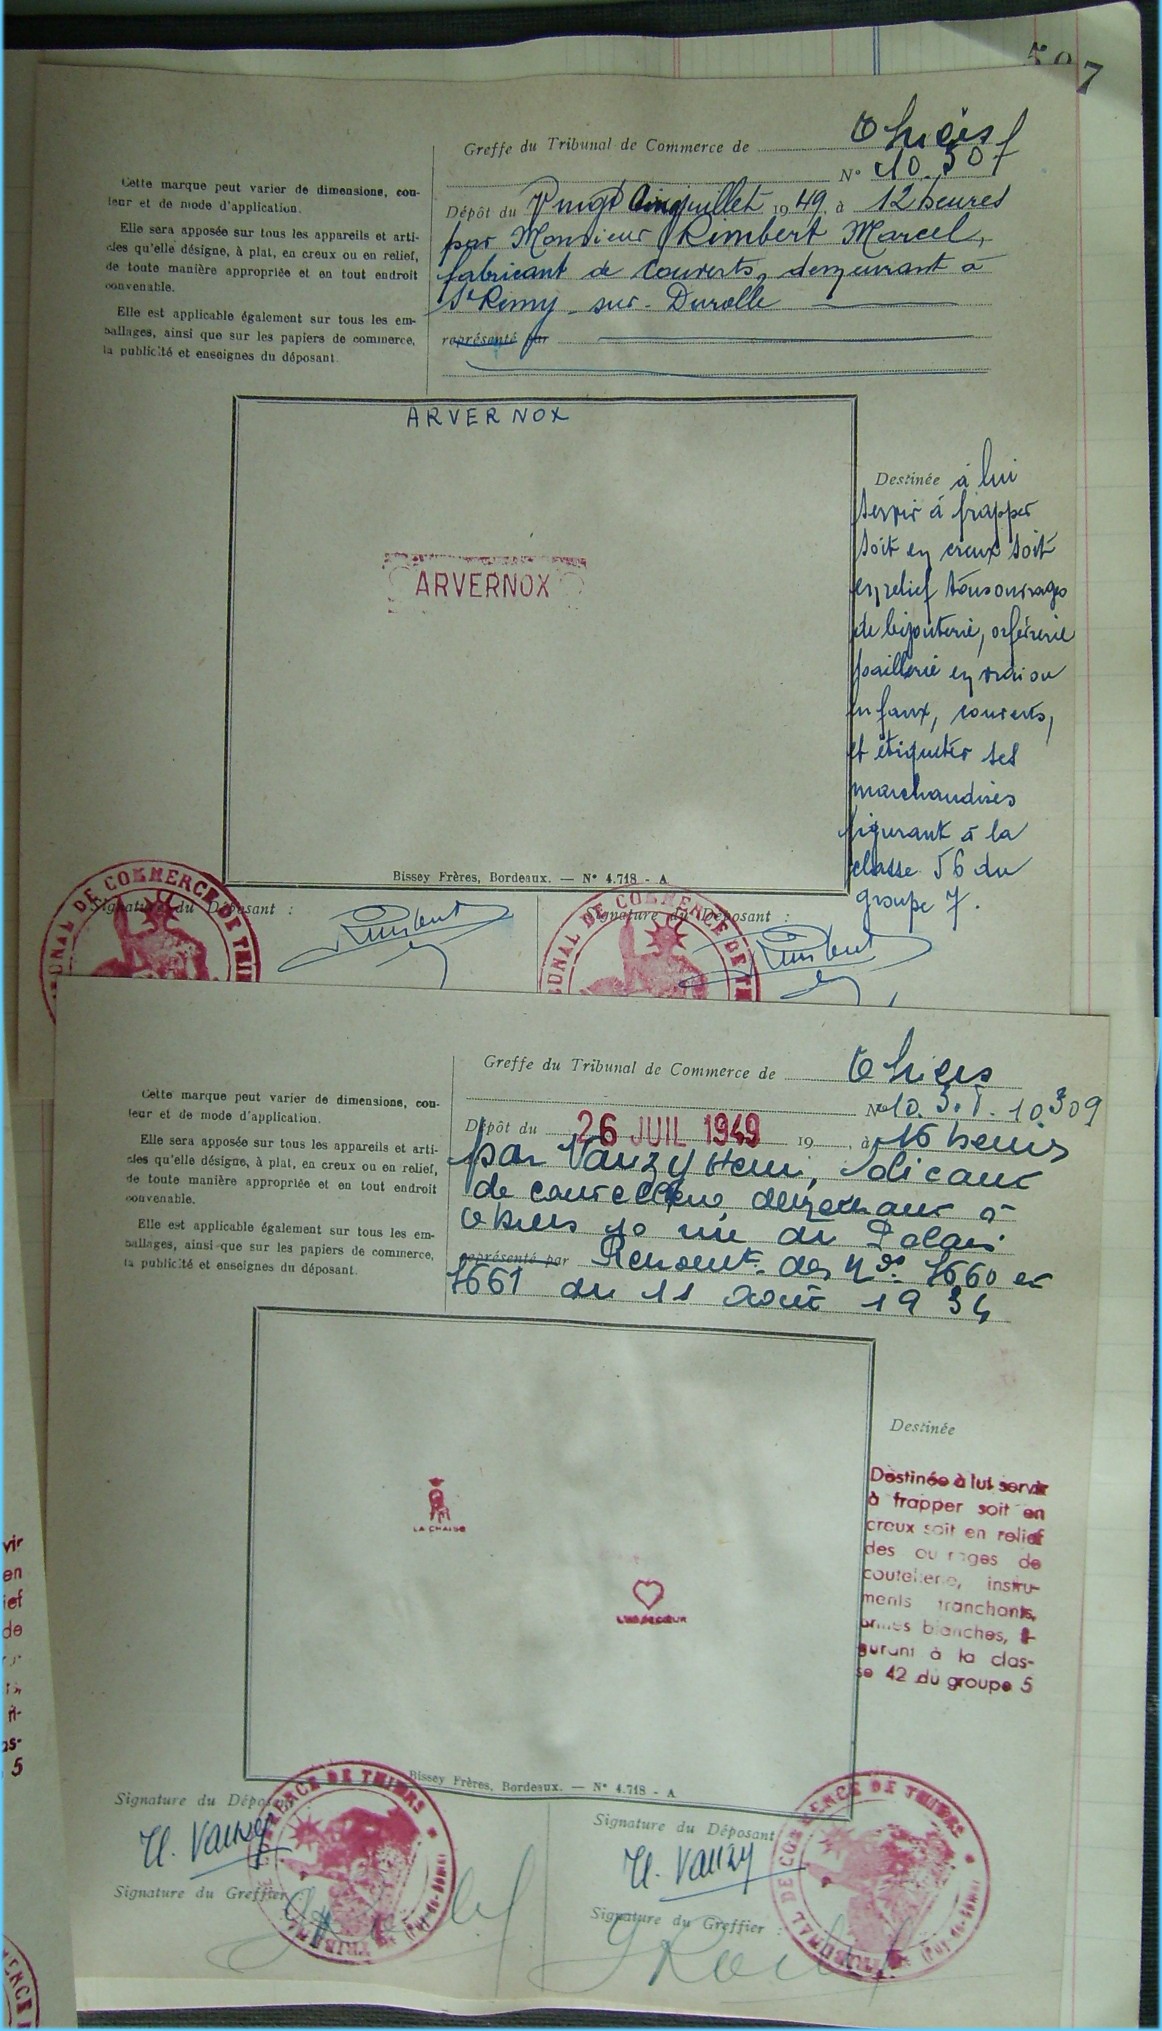 507
Greffe du Tribunal de Commerce de Thiers
N° 10.307
Dépôt du Vingt Cinq juillet 1949 à 12 heures
par Monsieur Rimbert Marcel,
fabricant de couverts, demeurant à
St Remy - sur - Durolle
représenté par
Cette marque peut varier de dimensione, cou-
leur et de mode d'application.
Elle sera apposée sur tous les appareils et arti-
cles qu'elle désigne, à plat, en creux ou en relief,
de toute manière appropriée et en tout endroit
convenable.
Elle est applicable également sur tous les em-
ballages, ainsi que sur les papiers de commerce,
la publicité et enseignes du déposant.
ARVERNOX
ARVERNOX
Destinée à lui
servir à frapper
soit en creux soit
en relief tous ouvrages
de bijouterie, orfévrerie
joaillerie en vrai ou
en faux, couverts,
et étiqueter ses
marchandises
figurant à la
classe 56 du
groupe 7.
Bissey Frères, Bordeaux. — N° 4.718 - A
Signature du Déposant :
Rimbert
Signature du Déposant :
Rimbert
TRIBUNAL DE COMMERCE DE THIERS
TRIBUNAL DE COMMERCE DE THIERS
Greffe du Tribunal de Commerce de Thiers
N° 10.308. 10.309
Dépôt du 26 JUIL 1949 19 à 16 heures
par Vauzy Henri, fabricant
de coutellerie, demeurant à
Thiers 10 rue du Palais
représenté par Renouvt. des nos. 7660 et
7661 du 11 août 1934
Cette marque peut varier de dimensions, cou-
leur et de mode d'application.
Elle sera apposée sur tous les appareils et arti-
cles qu'elle désigne, à plat, en creux ou en relief,
de toute manière appropriée et en tout endroit
convenable.
Elle est applicable également sur tous les em-
ballages, ainsi que sur les papiers de commerce,
la publicité et enseignes du déposant.
LA CHAISE
Destinée
Destinée à lui servir
à frapper soit en
creux soit en relief
des ouvrages de
coutellerie, instru-
ments tranchants,
armes blanches, fi-
gurant à la clas-
se 42 du groupe 5
Bissey Frères, Bordeaux. — N° 4.718 - A
Signature du Déposant
H. Vauzy
Signature du Greffier
Signature du Déposant
H. Vauzy
Signature du Greffier :
TRIBUNAL DE COMMERCE DE THIERS (Puy-de-Dôme)
TRIBUNAL DE COMMERCE DE THIERS (Puy-de-Dôme)
vir
en
ief
de
as-
5